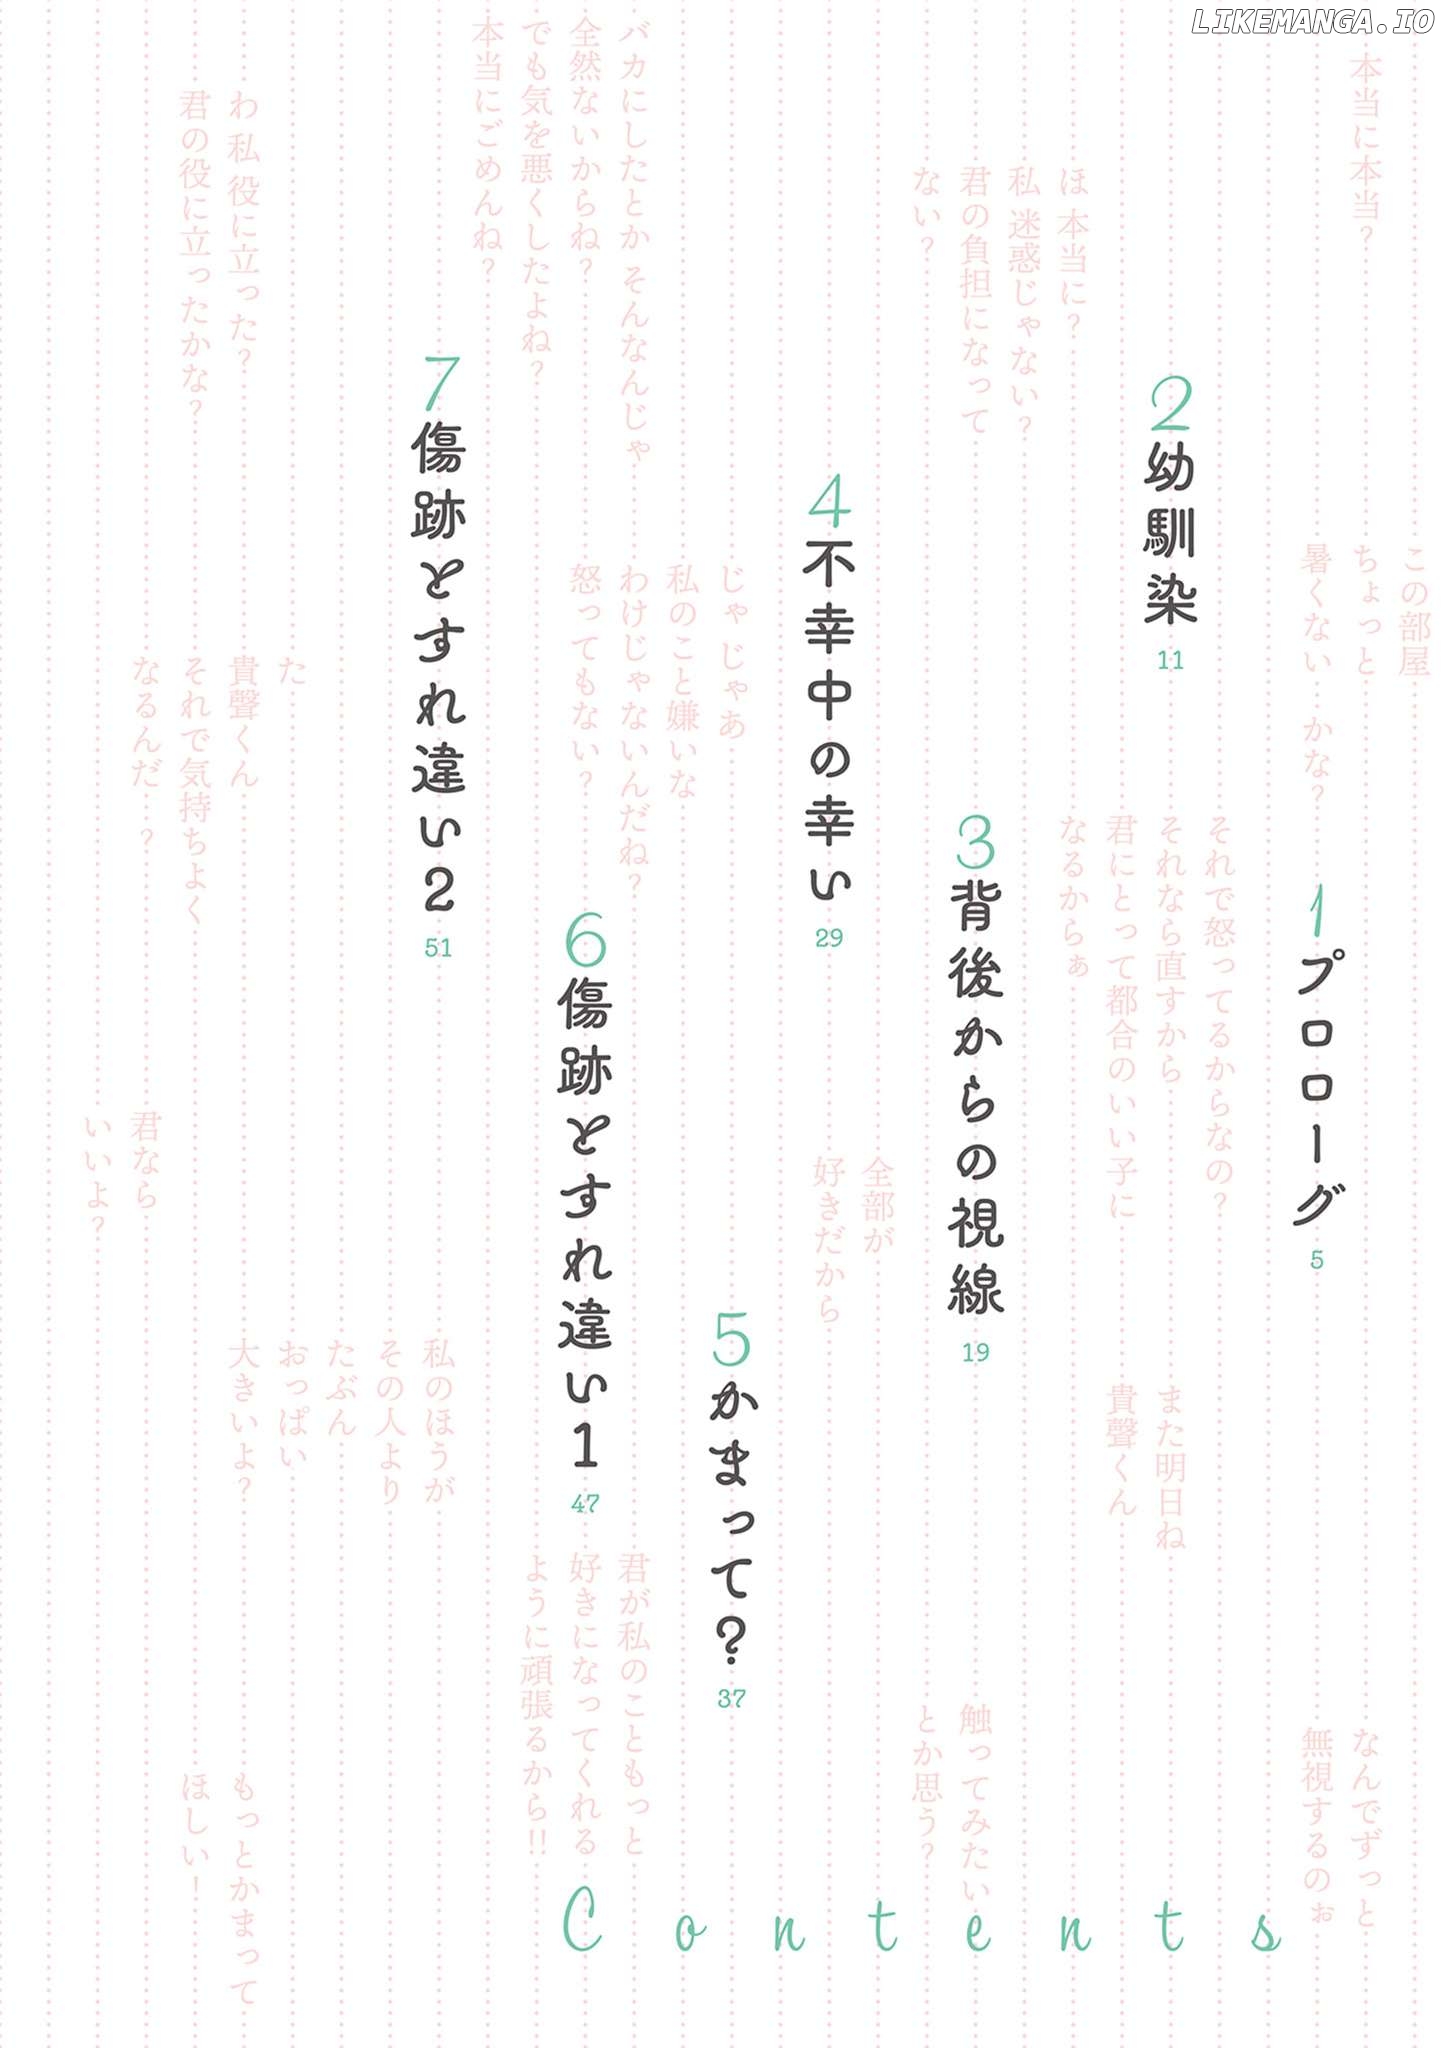 LIKEMANGA.IO
本当に本当?
この部屋
ちょっと
暑くない かな?
なんでずっと
無視するのぉ
1 プロローグ 5
2 幼馴染 11
それで怒ってるからなの?
それなら直すから
君にとって都合のいい子に
なるからぁ
また明日ね
貴聲くん
ほ 本当に?
私 迷惑じゃない?
君の負担になって
ない?
3 背後からの視線 19
触ってみたい
とか思う?
全部が
好きだから
4 不幸中の幸い 29
じゃ じゃあ
私のこと嫌いな
わけじゃないんだね?
怒ってもない?
5 かまって? 37
バカにしたとか そんなんじゃ
全然ないからね?
でも気を悪くしたよね?
本当にごめんね?
6 傷跡とすれ違い1 47
君が私のこともっと
好きになってくれる
ように頑張るから!!
7 傷跡とすれ違い2 51
私のほうが
その人より
たぶん
おっぱい
大きいよ?
わ 私 役に立った?
君の役に立ったかな?
た
貴聲くん
それで気持ちよく
なるんだ ?
君なら
いいよ?
もっとかまって
ほしい!
Contents